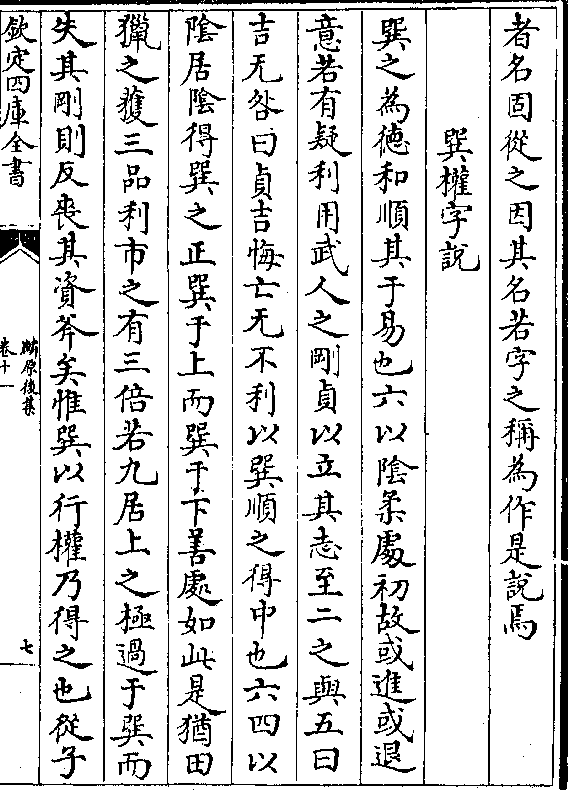 者名固從之因其名若字之稱為作是說焉
巽權字說
巽之為德和順其于易也六以陰柔處初故或進或退
意若有疑利用武人之剛貞以立其志至二之與五曰
吉无咎曰貞吉悔亡无不利以巽順之得中也六四以
陰居陰得巽之正巽于上而巽于下善處如此是猶田
獵之獲三品利市之有三倍若九居上之極過于巽而
失其剛則反喪其資斧矣惟巽以行權乃得之也從子
欽定四庫全書
麟原後集
卷十一
七